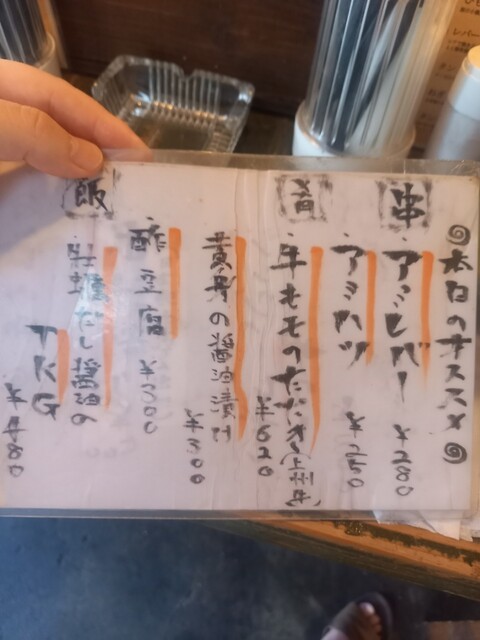 本日のオススメ
串
アミレバー ¥280
アミハツ ¥250
肴
牛モモのたたき(上州牛)
¥620
黄身の醤油漬け
¥300
酢豆腐 ¥300
飯
牡蠣だし醤油の
TKG
¥480
レバー